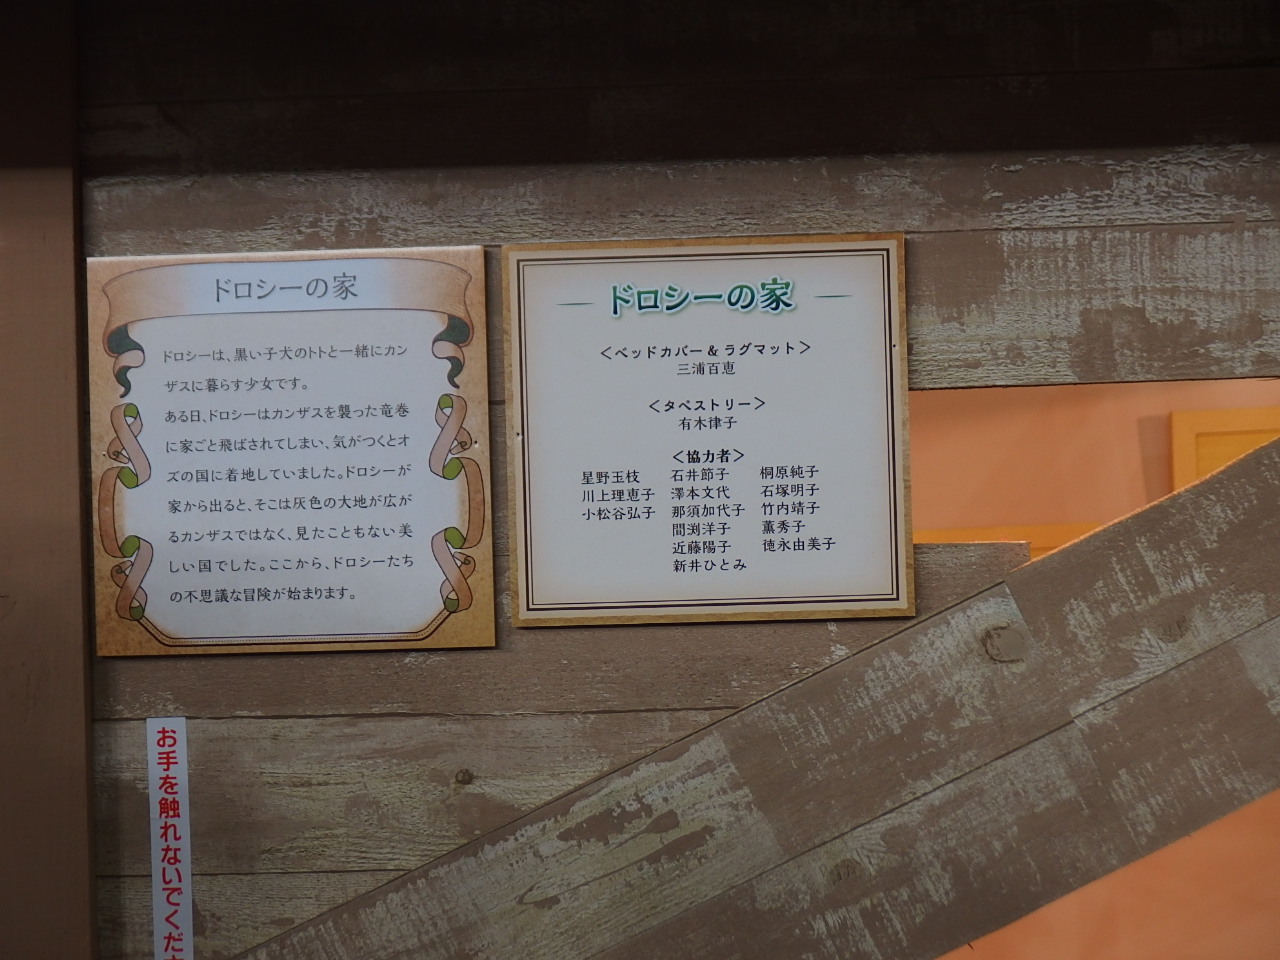 ドロシーの家
ドロシーは、黒い子犬のトトと一緒にカン
ザスに暮らす少女です。
ある日、ドロシーはカンザスを襲った竜巻
に家ごと飛ばされてしまい、気がつくとオ
ズの国に着地していました。ドロシーが
家から出ると、そこは灰色の大地が広が
るカンザスではなく、見たこともない美
しい国でした。ここから、ドロシーたち
の不思議な冒険が始まります。
ドロシーの家
＜ベッドカバー＆ラグマット＞
三浦百恵
＜タペストリー＞
有木律子
＜協力者＞
星野玉枝 石井節子 桐原純子
川上理恵子 澤本文代 石塚明子
小松谷弘子 那須加代子 竹内靖子
間渕洋子 薫秀子
近藤陽子 徳永由美子
新井ひとみ
お手を触れないでくだ